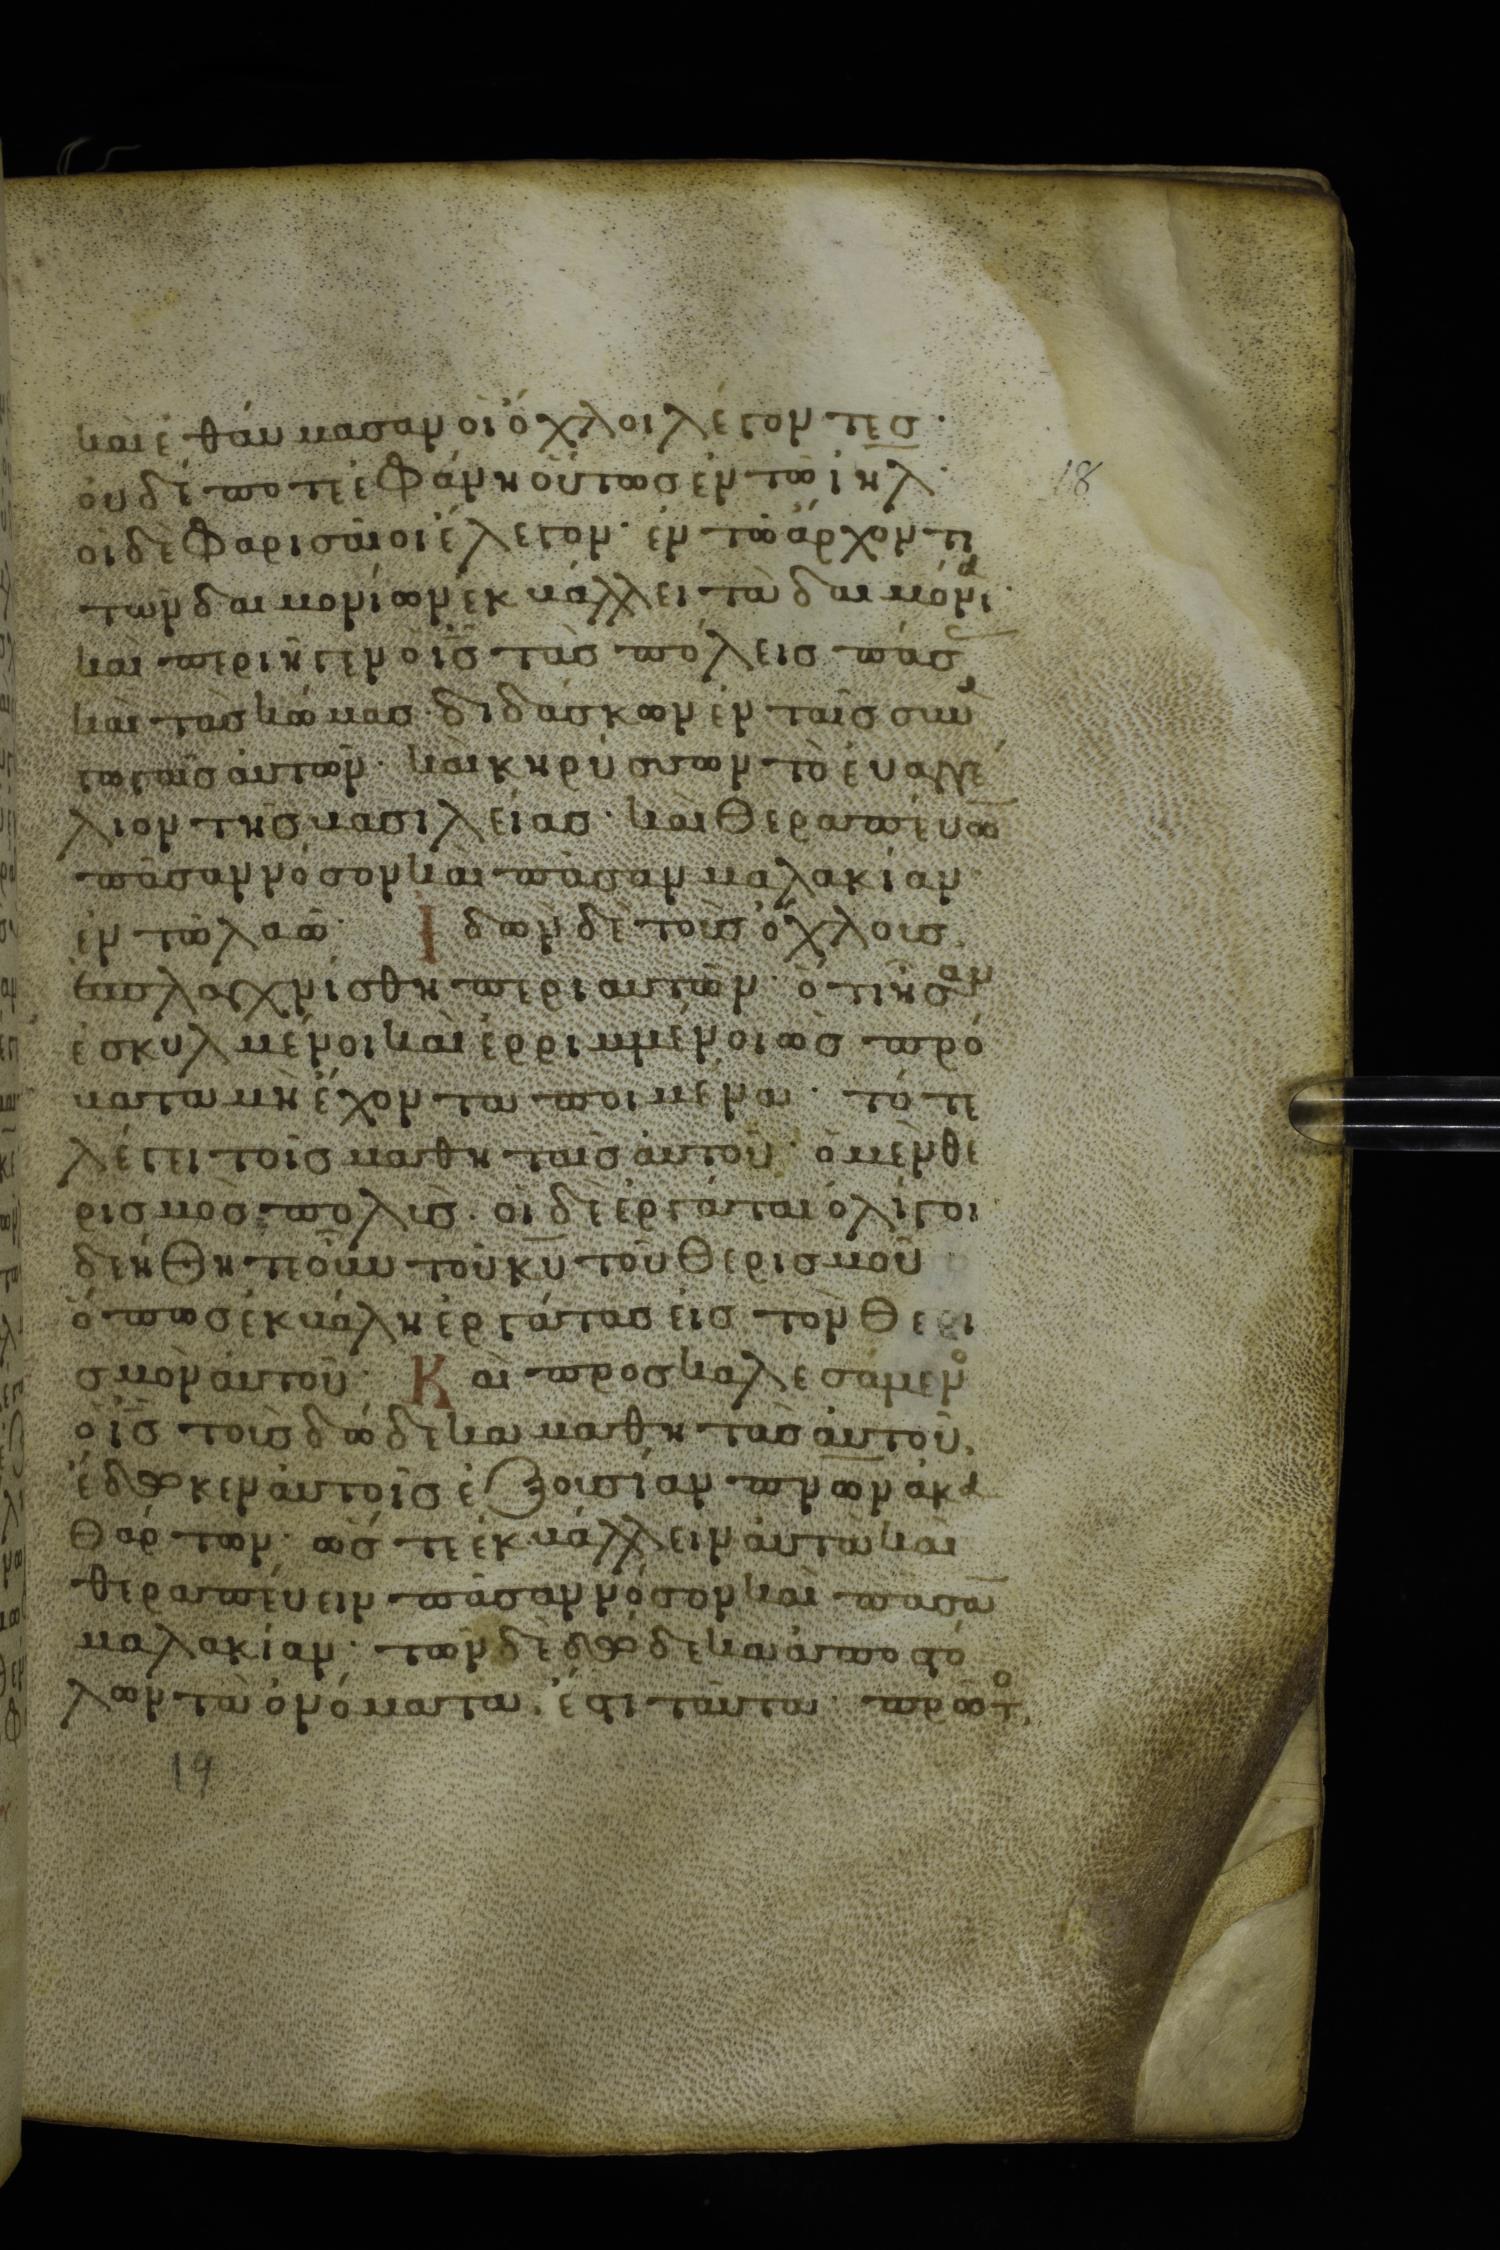 καὶ ἐθαύμασαν οἱ ὄχλοι λέγοντες·
18
οὐδέποτε ἐφάνη οὕτως ἐν τῶ ιηλ·
οἱ δὲ φαρισαῖοι ἔλεγον· ἐν τῶ ἄρχοντι
τῶν δαιμονίων ἐκβάλλει τὰ δαιμόνια·
καὶ περιῆγεν ὁ ις τὰς πόλεις πάσ
καὶ τὰς κώμας· διδάσκων ἐν ταῖς συνα
γωγαῖς αὐτῶν· καὶ κηρύσσων τὸ εὐαγγέ
λιον τῆς βασιλείας· καὶ θεραπεύω̅
πᾶσαν νόσον καὶ πᾶσαν μαλακίαν
ἐν τῶ λαῶ· Ἰδὼν δὲ τοὺς ὄχλους
ἐσπλαγχνίσθη περὶ αὐτῶν· ὅτι ἦσαν
ἐσκυλμένοι καὶ ἐρριμμένοι ὡς πρό
βατα μὴ ἔχοντα ποιμένα· τότε
λέγει τοῖς μαθηταῖς αὐτοῦ· ὁ μὲν θε
ρισμὸς πολύς· οἱ δὲ ἐργάται ὀλίγοι
δεήθητε οὖν τοῦ κυ τοῦ θερισμοῦ
ὅπως ἐκβάλη ἐργάτας εἰς τὸν θερι
σμὸν αὐτοῦ· Καὶ προσκαλεσάμενο
ὁ ις τοὺς δώδεκα μαθητὰς αὐτοῦ,
ἔδωκεν αὐτοῖς ἐξουσίαν πνων ἀκα
θάρτων· ὥστε ἐκβάλλειν αὐτὰ καὶ
θεραπεύειν πᾶσαν νόσον καὶ πᾶσα̅
μαλακίαν· τῶν δὲ δώδεκα ἀποστό
λων τὰ ὀνόματα, ἐστι ταῦτα· πρῶτο
19